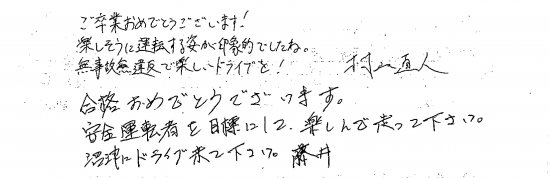 ご卒業おめでとうございます!
楽しそうに運転する姿が印象的でしたね。
無事故無違反で楽しいドライブを! 村山直人
合格おめでとうございます。
安全運転者を目標にして、楽しんで走って下さい。
沼津にドライブ来て下さい。藤井